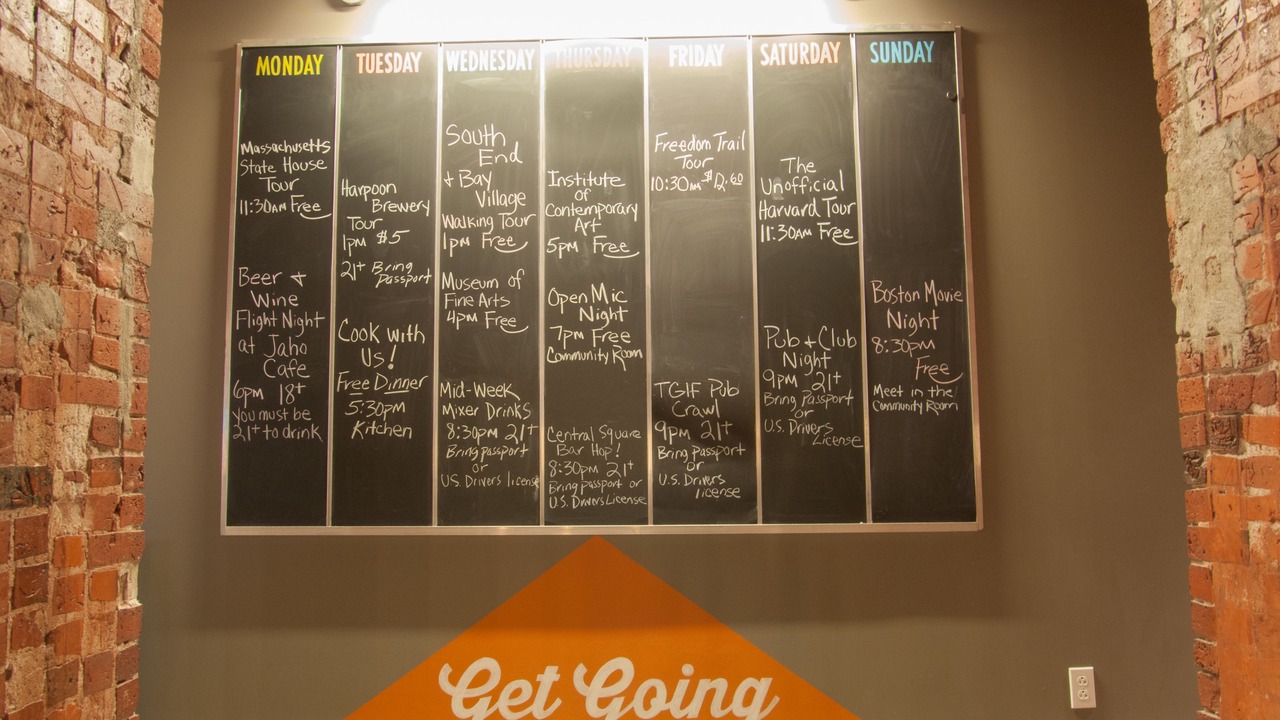 MONDAY
Massachusetts
State House
Tour
11:30AM Free
Beer +
Wine
Flight Night
at Jaho
Cafe
6pm 18+
you must be
21+ to drink
TUESDAY
Harpoon
Brewery
Tour
1pm $5
21+ Bring
Passport
Cook with
Us!
Free Dinner
5:30pm
Kitchen
WEDNESDAY
South
End
+ Bay
Village
Walking Tour
1pm Free
Museum of
Fine Arts
4pm Free
Mid-Week
Mixer Drinks
8:30pm 21+
Bring passport
or
U.S. Drivers license
THURSDAY
Institute
of
Contemporary
Art
5pm Free
Open Mic
Night
7pm Free
Community Room
Central Square
Bar Hop!
8:30pm 21+
Bring passport or
U.S. Drivers License
FRIDAY
Freedom Trail
Tour
10:30AM
TGIF Pub
Crawl
9pm 21+
Bring Passport
or
U.S. Drivers
license
SATURDAY
The
Unofficial
Harvard Tour
11:30AM Free
Pub + Club
Night
9pm 21+
Bring Passport
or
U.S. Drivers
License
SUNDAY
Boston Movie
Night
8:30pm
Free
Meet in the
Community Room
Get Going